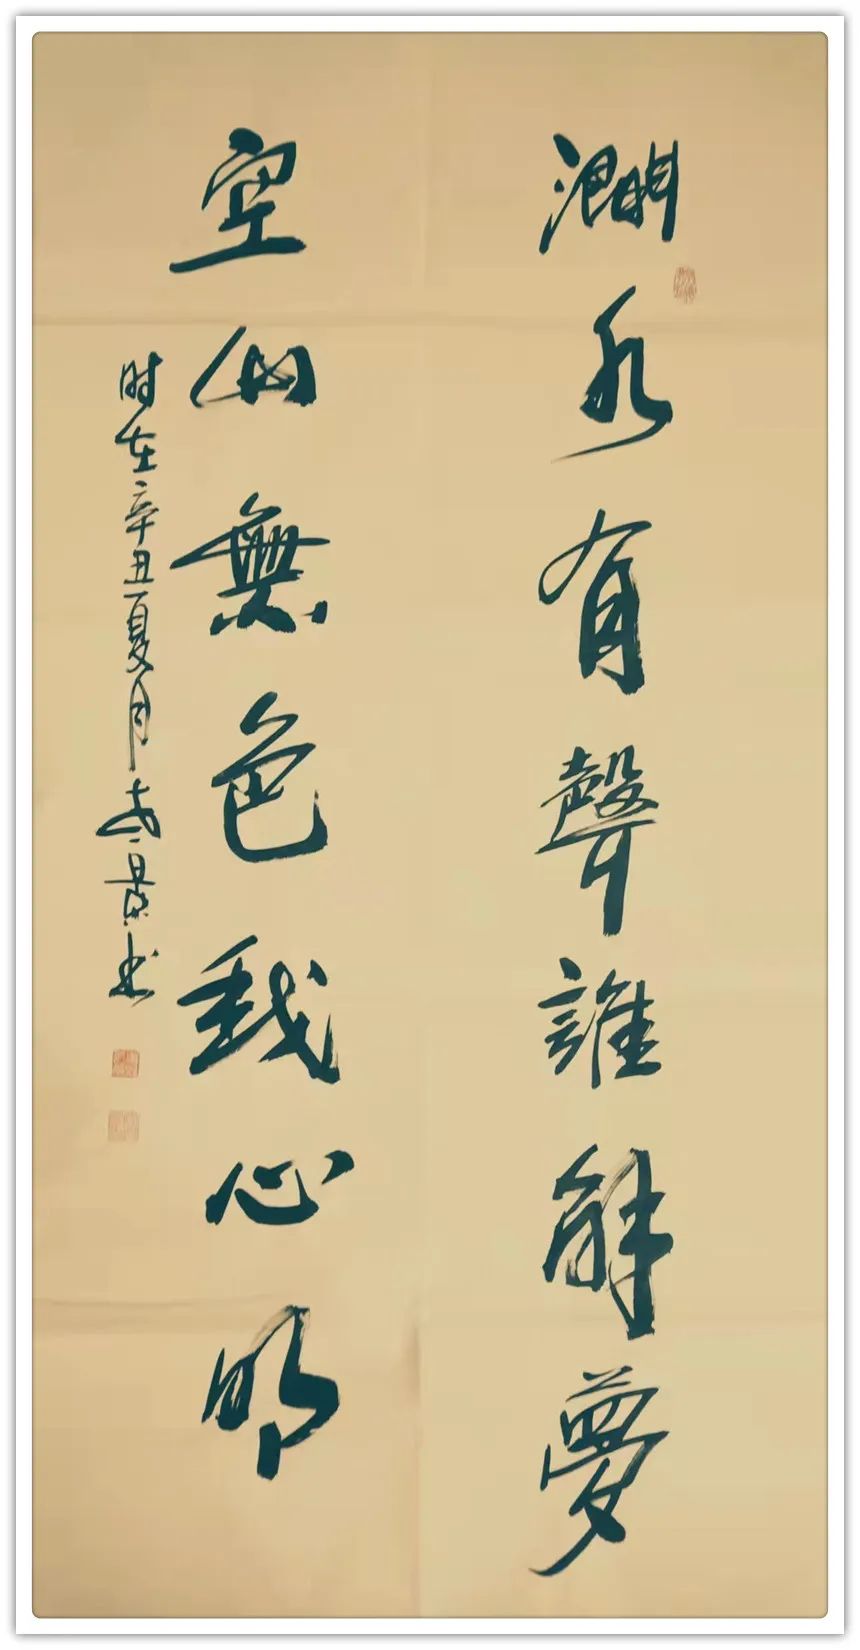 澗水有聲誰解夢
空山無色我心明
时在辛丑夏月
景书